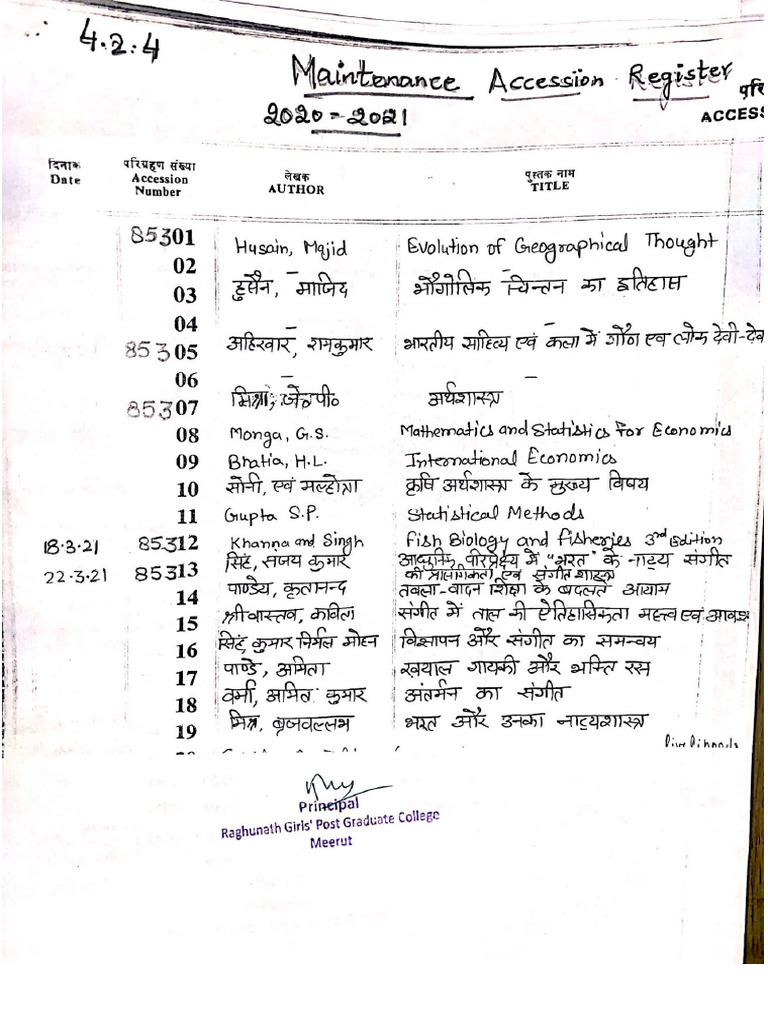 4.2.4
Maintenance Accession Register
2020-2021
परि
ACCESS
दिनाक परिग्रहण संख्या लेखक पुस्तक नाम
Date Accession Number AUTHOR TITLE
85301 Husain, Majid Evolution of Geographical Thought
02 – –
03 हुसैन, माजिद भौगोलिक चिन्तन का इतिहास
04 – –
85305 अहिरवार, रामकुमार भारतीय साहित्य एवं कला में गौण एवं लोक देवी-देव
06 – –
85307 मिश्रा, जे०पी० अर्थशास्त्र
08 Monga, G.S. Mathematics and Statistics For Economics
09 Bhatia, H.L. International Economics
10 सोनी, एवं मल्होत्रा कृषि अर्थशास्त्र के मुख्य विषय
11 Gupta S.P. Statistical Methods
18.3.21 85312 Khanna and Singh Fish Biology and Fisheries 3rd Edition
22-3.21 85313 सिंह, संजय कुमार आधुनिक परिप्रेक्ष्य में "भरत" के नाट्य संगीत
की प्रासंगिकता एवं संगीत शास्त्र
14 पाण्डेय, कृतानन्द तबला-वादन शिक्षा के बदलते आयाम
15 श्रीवास्तव, कविता संगीत में ताल की ऐतिहासिकता महत्व एवं आवश
16 सिंह, कुमार निर्मल मोहन विज्ञापन और संगीत का समन्वय
17 पाण्डे, अमिता खयाल गायकी और भक्ति रस
18 वर्मा, अमित कुमार अंतर्मन का संगीत
19 मिश्र, ब्रजवल्लभ भरत और उनका नाट्यशास्त्र
Principal
Raghunath Girls' Post Graduate College
Meerut